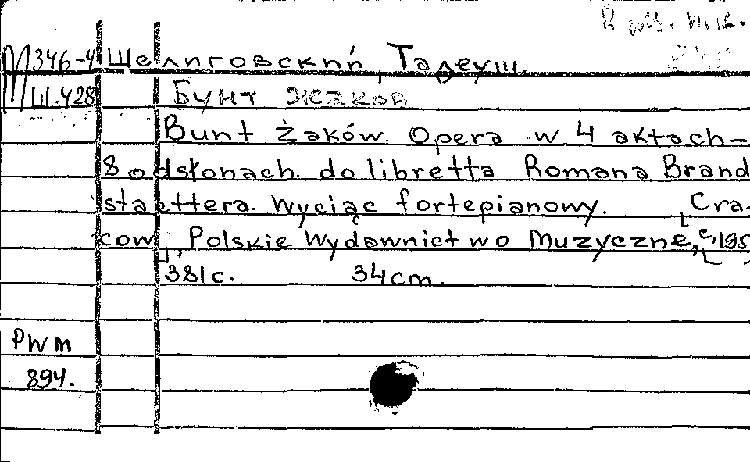 М346-4 Шелиговский, Тадеуш.
Ш.428 Бунт жаков
Bunt żaków. Opera w 4 aktach-
8 odsłonach do libretta Romana Brand
staettera. Wyciąc fortepianowy. [Cra-
cow], Polskie Wydawnictwo Muzyczne, [c,195
381c. 34cm.
PWM
894.